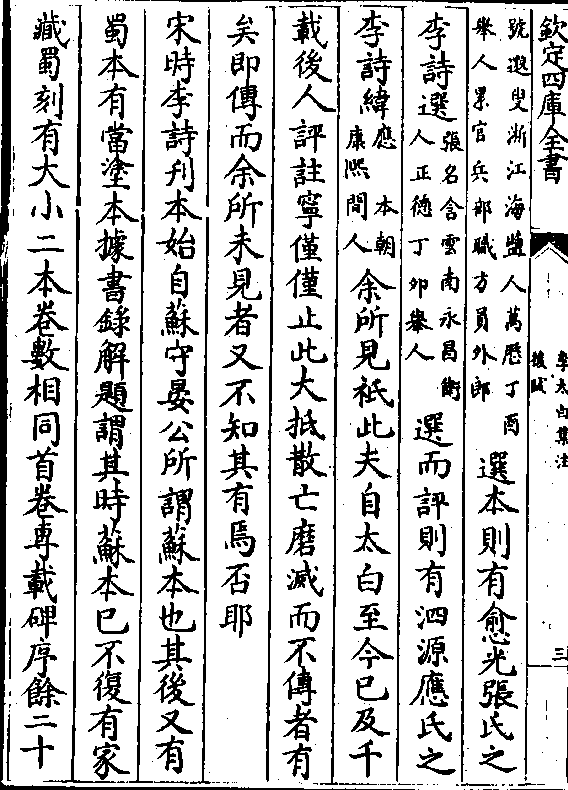 欽定四庫全書
李太白集注
後跋
三
號遯叟浙江海鹽人萬厯丁酉
舉人累官兵部職方員外郎
選本則有愈光張氏之
李詩選
張名含雲南永昌衛
人正德丁卯舉人
選而評則有泗源應氏之
李詩緯
應本朝
康熙間人
余所見祇此夫自太白至今已及千
載後人評註寧僅僅止此大抵散亡磨滅而不傳者有
矣即傳而余所未見者又不知其有焉否耶
宋時李詩刋本始自蘇守晏公所謂蘇本也其後又有
蜀本有當塗本據書錄解題謂其時蘇本已不復有家
藏蜀刻有大小二本卷數相同首卷專載碑序餘二十